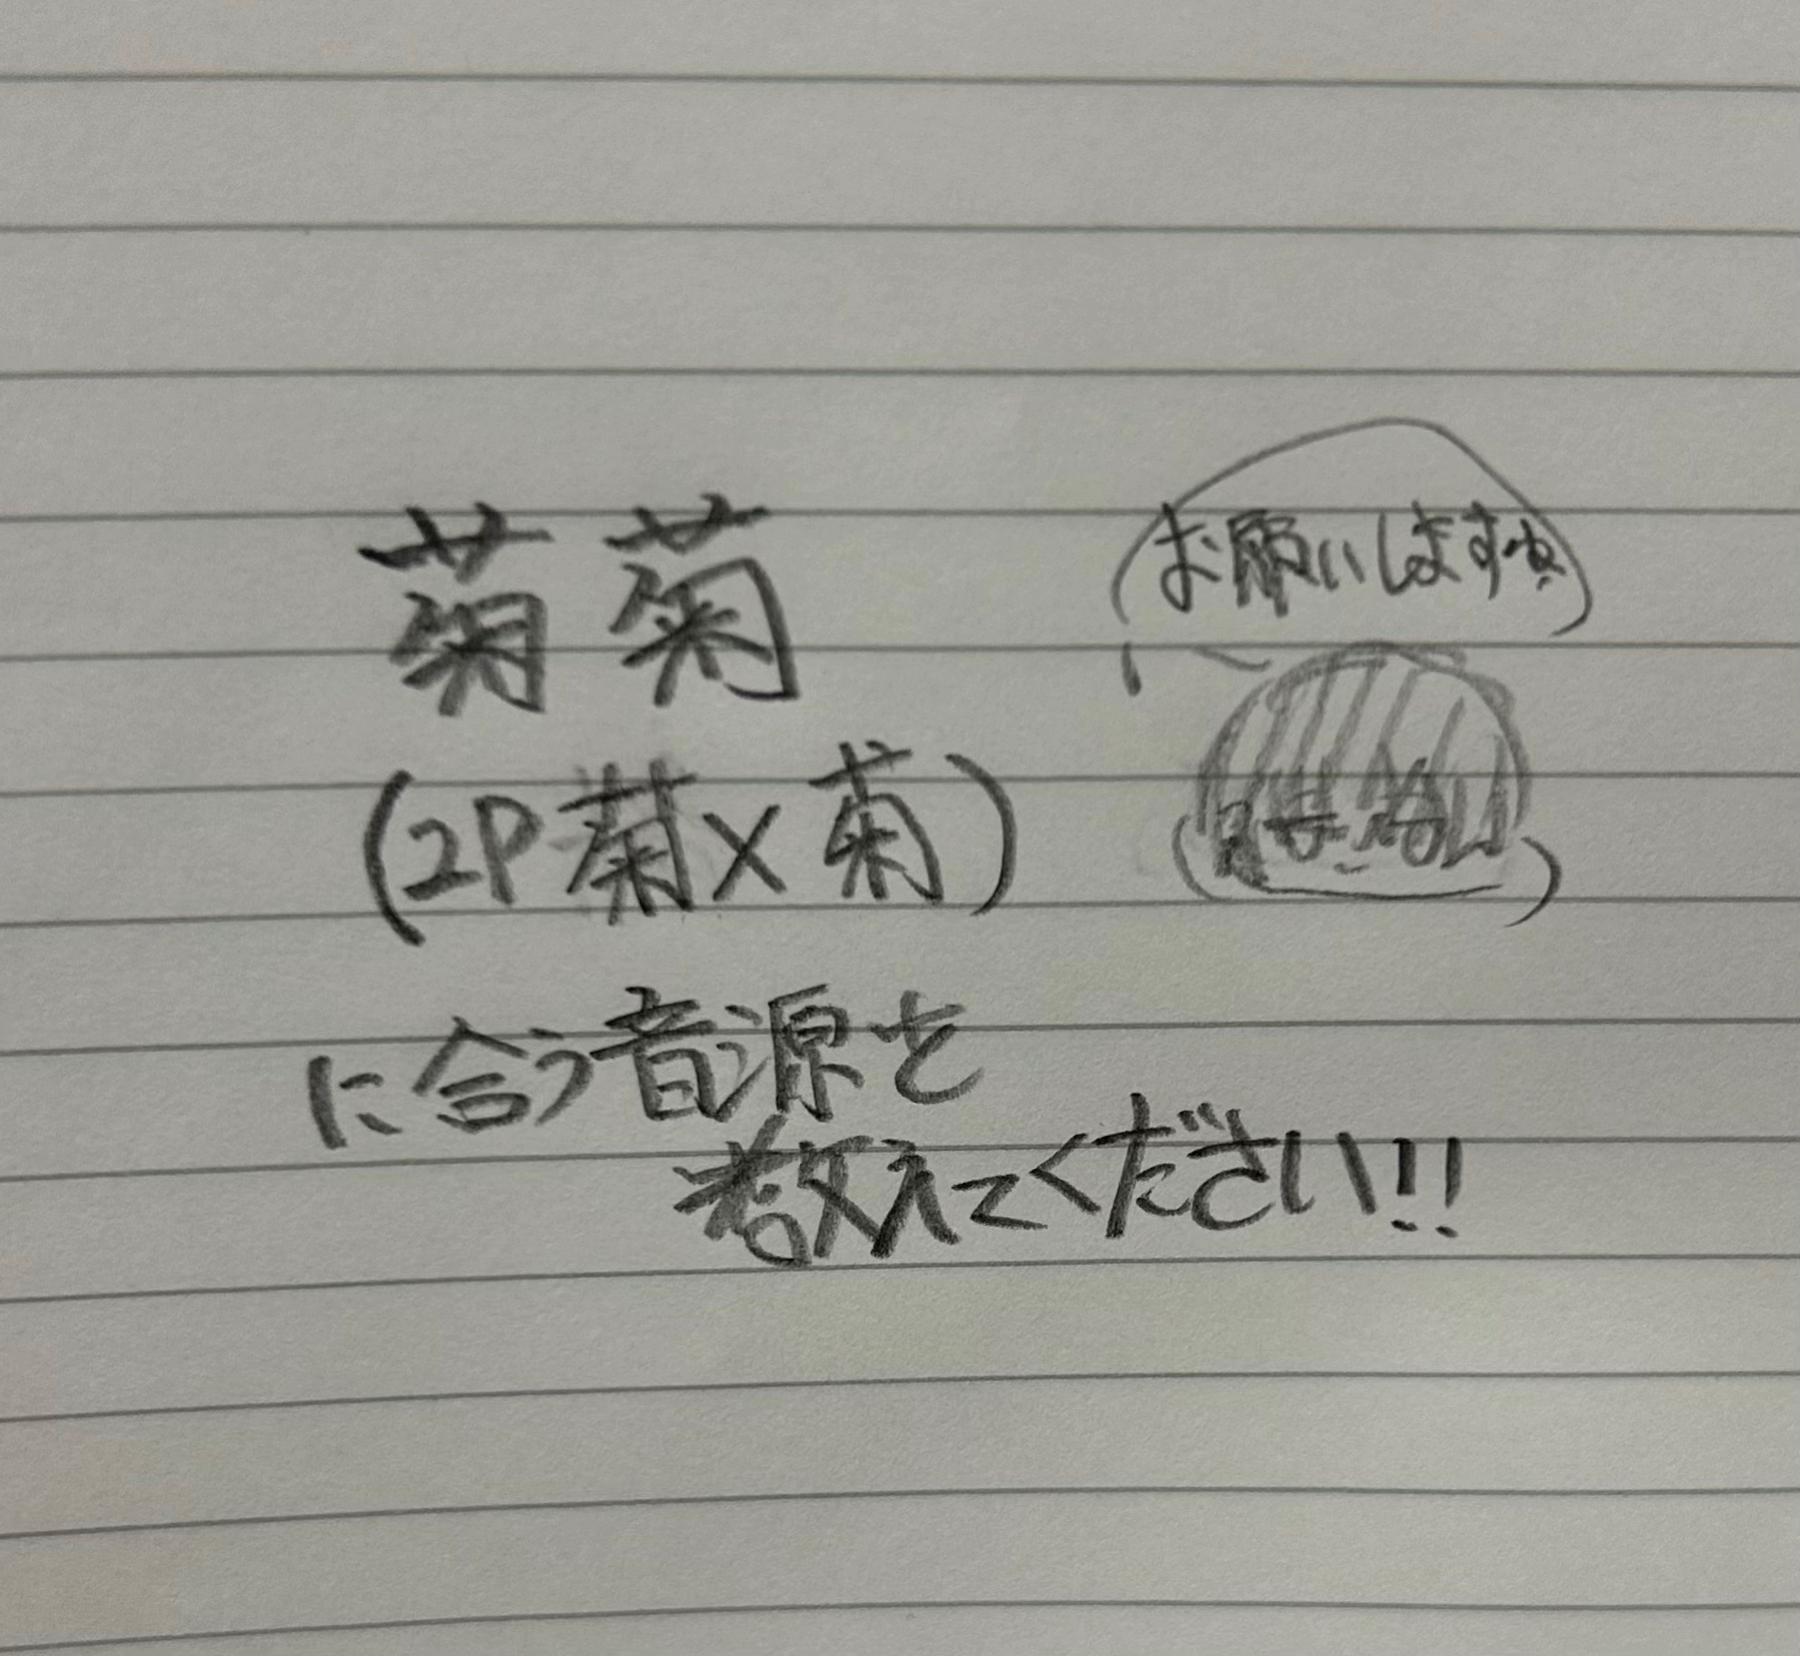 菊菊
お願いします
(2P菊×菊)
に合う音源を
教えてください!!